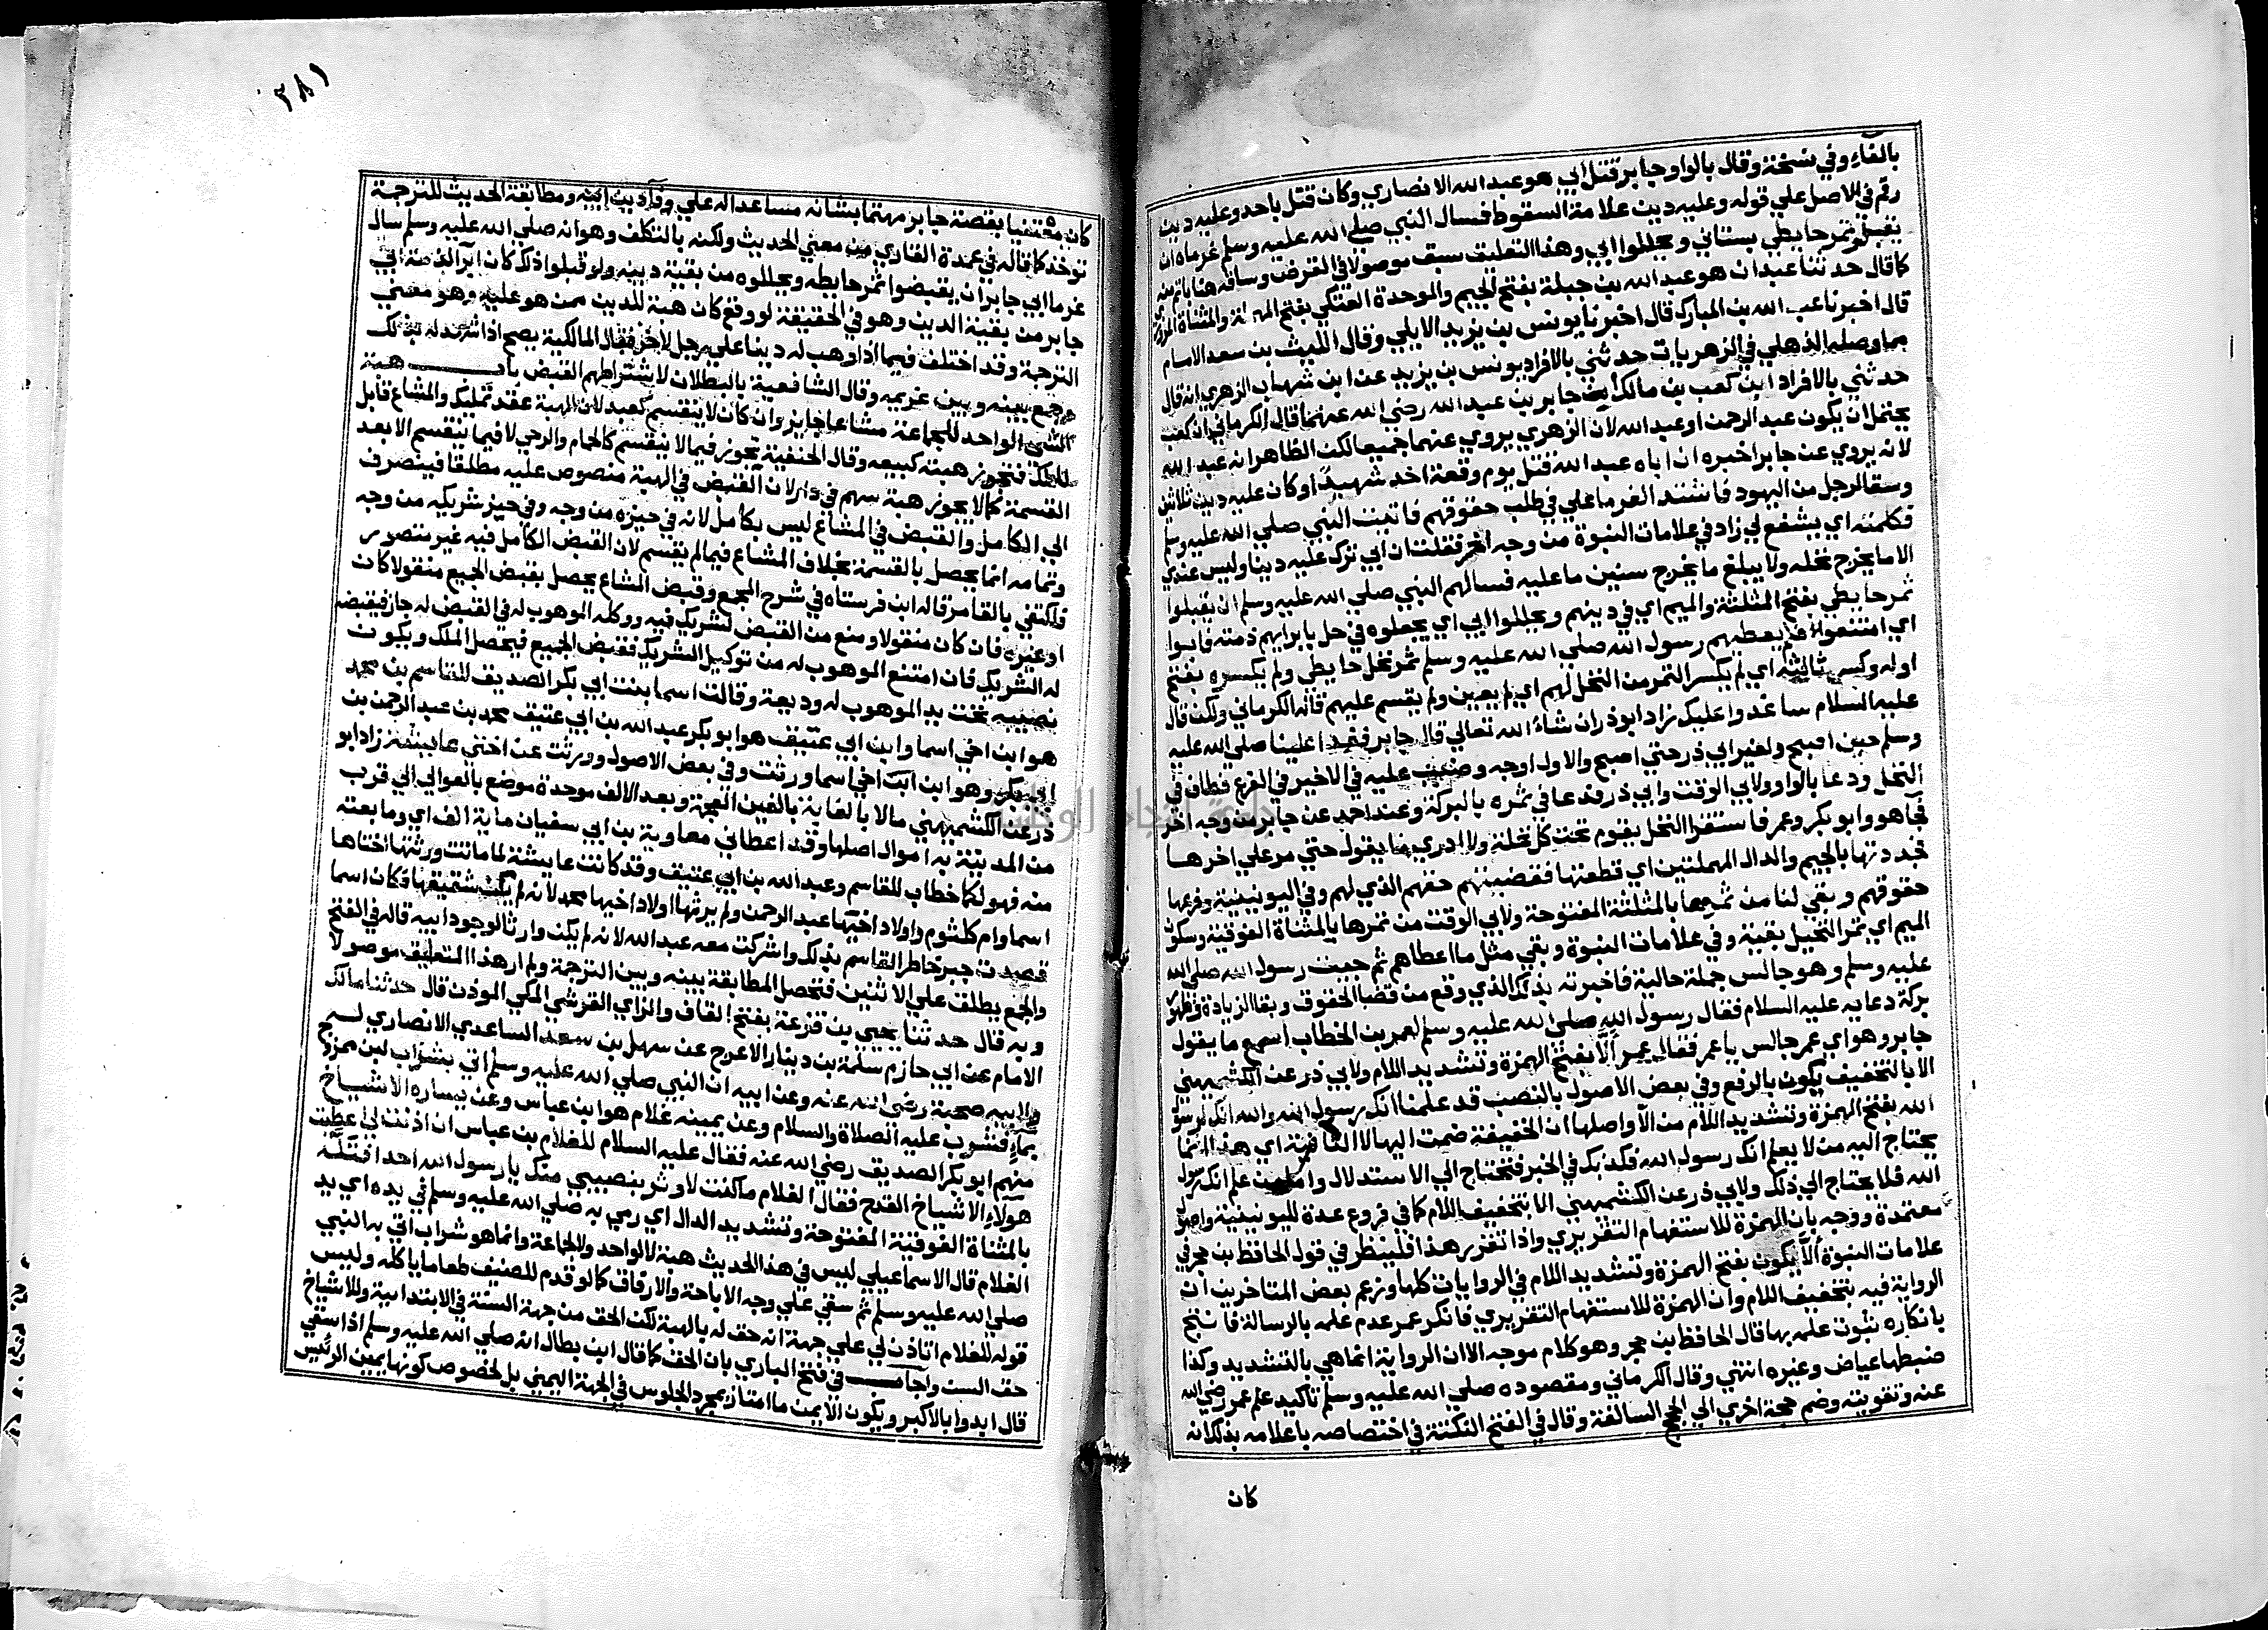 بالفاء وفي نسخة وقال بالواو جابر قتل ابي هو عبد الله الانصاري وكان قتل باحد وعليه دين
رقم في الاصل علي قوله وعليه دين علامة السقوط فسال النبي صلي الله عليه وسلم غرماه ان
يقبلوا ثمر حايطي بستاني ويحللوا ابي وهذا التعليق سبق موصولا في القرض وساقه هنا باتم منه
كما قال حدثنا عبدان هو عبد الله بن جبلة بفتح الجيم والموحدة العتكي بفتح المهملة والمثناة
قال اخبرنا عبد الله بن المبارك قال اخبرنا يونس بن يزيد الايلي وقال الليث بن سعد الامام
مما وصله الذهلي في الزهريات حدثني بالافراد يونس بن يزيد عن ابن شهاب الزهري انه قال
حدثني بالافراد ابن كعب بن مالك ان جابر بن عبد الله رضي الله عنهما قال الكرماني ابن كعب
يحتمل ان يكون عبد الرحمن او عبد الله لان الزهري يروي عنهما جميعا لكن الظاهر انه عبد الله
لانه يروي عن جابر اخبره ان اباه عبد الله قتل يوم وقعة احد شهيدا وكان عليه دين ثلاثين
وسقا لرجل من اليهود فاشتد الغرما علي في طلب حقوقهم فاتيت النبي صلي الله عليه وسلم
فكلمته اي يشفع لي زاد في علامات النبوة من وجه اخر فقلت ان ابي ترك عليه دينا وليس عندي
الا ما يخرج نخله ولا يبلغ ما يخرج سنين ما عليه فسالهم النبي صلي الله عليه وسلم ان يقبلوا
ثمر حايطي بفتح المثلثة والميم اي في دينهم ويحللوا ابي اي يجعلوه في حل بابرايهم ذمته فابوا
اي امتنعوا فلم يعطهم رسول الله صلي الله عليه وسلم ثمر نخل حايطي ولم يكسره بفتح
اوله وكسر ثالثه اي لم يكسر الثمر من النخل لهم اي لم يعين ولم يقسم عليهم قاله الكرماني ولكن قال
عليه السلام ساغدوا عليك زاد ابو ذر ان شاء الله تعالي قال جابر فغدا علينا صلي الله عليه
وسلم حين اصبح ولغير ابي ذر حتي اصبح والاول اوجه وضبب عليه في الاخير في الفرع فطاف في
النخل ودعا بالواو ولابي الوقت وابي ذر فدعا في ثمره بالبركة وعند احمد عن جابر من وجه اخر
فجا هو وابو بكر وعمر فاستقرا النخل يقوم تحت كل نخلة ولا ادري ما يقول حتي مر علي اخرها
فجددتها بالجيم والدال المهملتين اي قطعتها فقضيتهم حقهم الذي لهم وفي اليونينية وفرعها
حقوقهم وبقي لنا من ثمرها بالمثلثة المفتوحة ولابي الوقت من تمرها بالمثناة الفوقية وسكون
الميم اي تمر النخيل بقية وفي علامات النبوة وبقي مثل ما اعطاهم ثم جيت رسول الله صلي الله
عليه وسلم وهو جالس جملة حالية فاخبرته بذلك الذي وقع من قضا الحقوق وبقا الزيادة وظهور
بركة دعايه عليه السلام فقال رسول الله صلي الله عليه وسلم لعمر بن الخطاب اسمع ما يقول
جابر وهو اي عمر جالس يا عمر فقال عمر الا بفتح الهمزة وتشديد اللام ولابي ذر عن الكشميهني
الا بالتخفيف يكون بالرفع وفي بعض الاصول بالنصب قد علمنا انك رسول الله والله انك لرسول
الله بفتح الهمزة وتشديد اللام من الا واصلها ان الخفيفة ضمت اليها لا النافية اي هذا انما
يحتاج اليه من لا يعلم انك رسول الله فكذبك في الخبر فتحتاج الي الاستدلال واما من علم انك رسول
الله فلا يحتاج الي ذلك ولابي ذر عن الكشميهني الا بتخفيف اللام كما في فروع عدة لليونينية واصول
معتمدة ووجه بان الهمزة للاستفهام التقريري واذا تقرر هذا فلينظر في قول الحافظ بن حجر في
علامات النبوة الا يكون بفتح الهمزة وتشديد اللام في الروايات كلها وزعم بعض المتاخرين ان
الرواية فيه بتخفيف اللام وان الهمزة للاستفهام التقريري فانكر عمر عدم علمه بالرسالة فانتج
بانكاره ثبوت علمه بها قال الحافظ بن حجر وهو كلام موجه الا ان الرواية انما هي بالتشديد وكذا
ضبطها عياض وغيره انتهي وقال الكرماني ومقصوده صلي الله عليه وسلم تاكيد علم عمر رضي الله
عنه وتقويته وضم حجة اخري الي الحجج السالفة وقال في الفتح النكتة في اختصاصه باعلامه بذلك انه
كان
٣٨١
كان معتنيا بقصة جابر مهتما بشانه مساعدا له علي وفا دين ابيه ومطابقة الحديث للترجمة
توخذ كما قاله في عمدة القاري من معني الحديث ولكنه بالتكلف وهو انه صلي الله عليه وسلم سال
غرما ابي جابر ان يقبضوا ثمر حايطه ويحللوه من بقية دينه ولو قبلوا ذلك كان ابرا لذمة ابي
جابر من بقية الدين وهو في الحقيقة لو وقع كان هبة للدين ممن هو عليه وهو معني
الترجمة وقد اختلف فيما اذا وهب له دينا علي رجل لاخر فقال المالكية يصح اذا اشهد له بذلك
وجمع بينه وبين غريمه وقال الشافعية بالبطلان لاشتراطهم القبض باب هبة
الشي الواحد للجماعة مشاعا جايز وان كان لا ينقسم كعبد لان الهبة عقد تمليك والمشاع قابل
للملك فتجوز هبته كبيعه وقال الحنفية تجوز فيما لا ينقسم كالحمام والرحي لا فيما ينقسم الا بعد
القسمة كما لا يجوز هبة سهم في دار لان القبض في الهبة منصوص عليه مطلقا فينصرف
الي الكامل والقبض في المشاع ليس بكامل لانه في حيزه من وجه وفي حيز شريكه من وجه
وتمامه انما يحصل بالقسمة بخلاف المشاع فيما لم يقسم لان القبض الكامل فيه غير متصور
فاكتفي بالقاصر قاله ابن فرستاه في شرح المجمع وقبض المشاع يحصل بقبض الجميع منقولا كان
او غيره فان كان منقولا ومنع من القبض لشريك فيه ووكله الموهوب له في القبض له جاز فيقبضه
له الشريك فان امتنع الموهوب له من توكيل الشريك فقبض الجميع فيحصل الملك ويكون
نصيبه تحت يد الموهوب له وديعة وقالت اسما بنت ابي بكر الصديق للقاسم بن محمد
هو ابن اخي اسما وابن ابي عتيق هو ابو بكر عبد الله بن ابي عتيق محمد بن عبد الرحمن بن
ابي بكر وهو ابن ابن اخي اسما ورثت وفي بعض الاصول وورثت عن اختي عايشة زاد ابو
ذر عن الكشميهني مالا بالغابة بالغين المعجمة وبعد الالف موحدة موضع بالعوالي الي قرب
من المدينة به اموال اصلها وقد اعطاني معاوية بن ابي سفيان ماية الف اي وما بعته
منه فهو لكما خطاب للقاسم وعبد الله بن ابي عتيق وقد كانت عايشة لما ماتت ورثتها اختاها
اسما وام كلثوم واولاد اخيها عبد الرحمن ولم يرثها اولاد اخيها محمد لانه لم يكن شقيقها فكان اسما
قصدت جبر خاطر القاسم بذلك واشركت معه عبد الله لانه لم يكن وارثا لوجود ابيه قاله في الفتح
والجمع يطلق علي الاثنين فتحصل المطابقة بينه وبين الترجمة ولم ار هذا التعليق موصولا
وبه قال حدثنا يحيي بن قزعة بفتح القاف والزاي القرشي المكي الموذن قال حدثنا مالك
الامام عن ابي حازم سلمة بن دينار الاعرج عن سهل بن سعد الساعدي الانصاري له
ولابيه صحبة رضي الله عنه وعن ابيه ان النبي صلي الله عليه وسلم اتي بشراب لبن ممزوج
بماء فشرب عليه الصلاة والسلام وعن يمينه غلام هو ابن عباس وعن يساره الاشياخ
منهم ابو بكر الصديق رضي الله عنه فقال عليه السلام للغلام بن عباس ان اذنت لي اعطيت
هولاء الاشياخ القدح فقال الغلام ما كنت لاوثر بنصيبي منك يا رسول الله احدا فتله
بالمثناة الفوقية المفتوحة وتشديد الدال اي رمي به صلي الله عليه وسلم في يده اي يد
الغلام قال الاسماعيلي ليس في هذا الحديث هبة لا لواحد ولا لجماعة وانما هو شراب اتي به النبي
صلي الله عليه وسلم ثم سقي علي وجه الاباحة والارفاق كما لو قدم للضيف طعاما ياكله وليس
قوله للغلام اتاذن لي علي جهة انه حق له بالهبة لكن الحق من جهة السنة في الابتدا به وللاشياخ
حق السن واجاب في فتح الباري بان الحق كما قال ابن بطال انه صلي الله عليه وسلم اذا سقي
قال ابدوا بالاكبر ويكون الايمن ما امتاز بمجرد الجلوس في الجهة اليمني بل لخصوص كونها يمين الرئيس